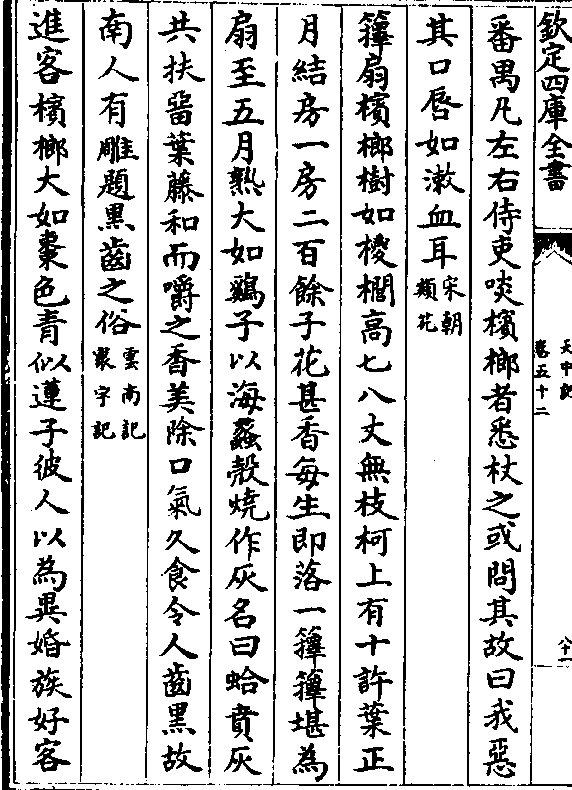 欽定四庫全書
天中記
卷五十二
八十一
番禺凡左右侍吏啖檳榔者悉杖之或問其故曰我惡
其口唇如漱血耳宋朝類苑
籜扇檳榔樹如椶櫚高七八丈無枝柯上有十許葉正
月結房一房二百餘子花甚香每生即落一籜籜堪為
扇至五月熟大如鷄子以海蠡殼燒作灰名曰蛤賁灰
共扶畱葉藤和而嚼之香美除口氣久食令人齒黑故
南人有雕題黑齒之俗雲南記寰宇記
進客檳榔大如棗色青似蓮子彼人以為異婚族好客